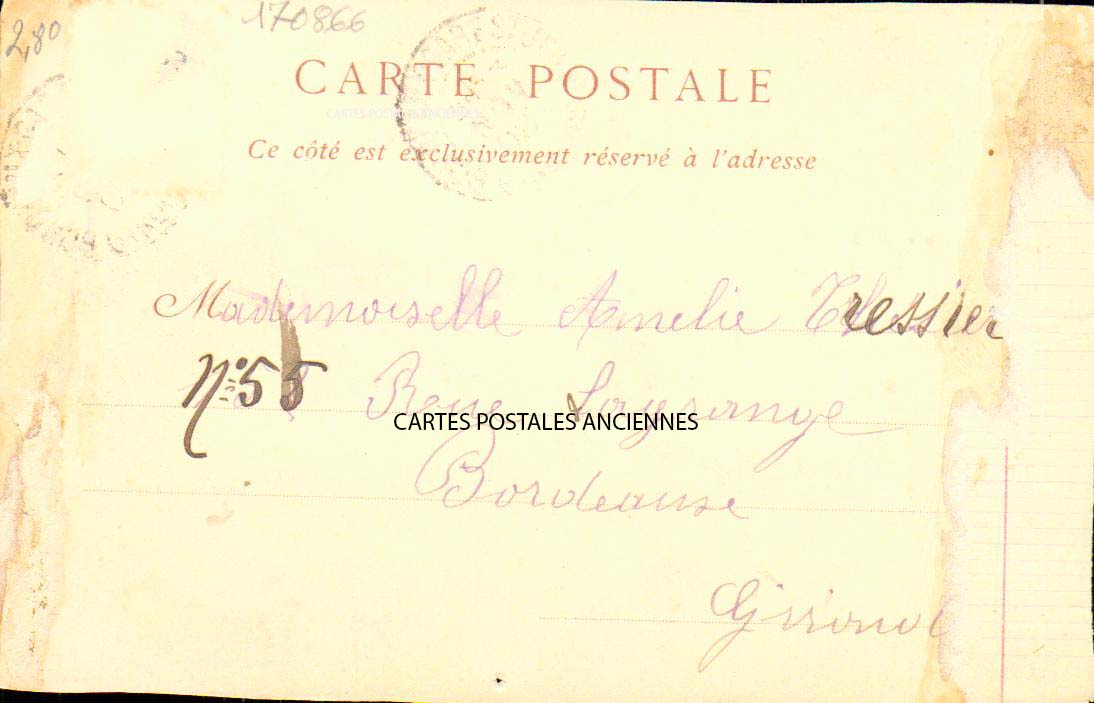 2,80
170866
CARTE POSTALE
CARTES POSTALES ANCIENNES
Ce côté est exclusivement réservé à l'adresse
Mademoiselle Amelie Tressier
N° 55 Rue Lagrange
CARTES POSTALES ANCIENNES
Bordeaux
Girond